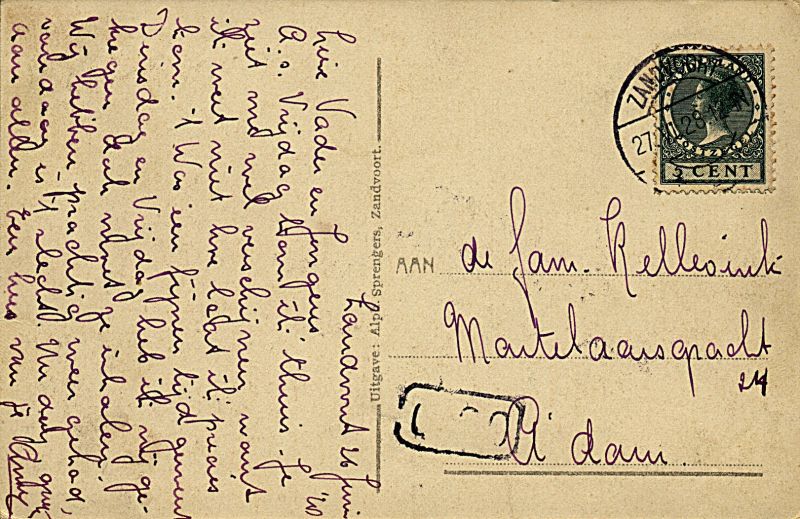 Zandvoort 26 Juni '29
Lieve Vader en Jongens
A.s. Vrijdag kom ik thuis. Je
ziet mij wel verschijnen want
ik weet niet hoe laat ik precies
kom. 't Was een fijnen tijd geweest
Dinsdag en Vrijdag heb ik
regen, dat moet je inhalen.
Wij hebben prachtig weer gehad,
vandaag is 't slecht. Nu dag
aan allen. Een kus van je
Uitgave: Alph. Sprengers, Zandvoort.
ZANDVOORT
27 29
NEDERLAND
5 CENT
AAN de fam. Kellesink
Martelaarsgracht
24
A'dam.